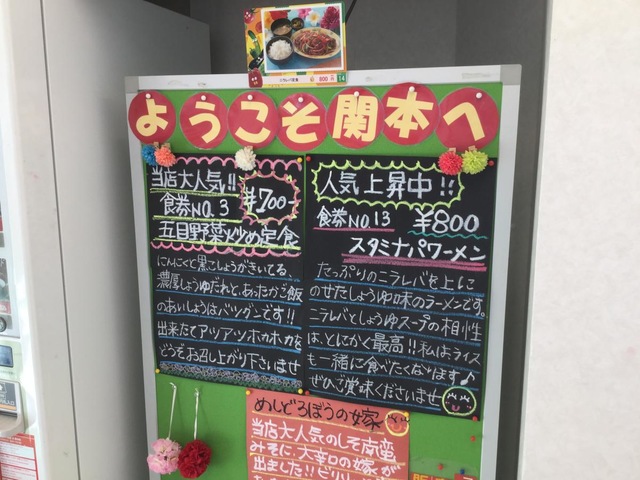 ニラレバ定食 800円 14
ようこそ関本へ
当店大人気!!
食券NO.3 ¥700-
五目野菜炒め定食
にんにくと黒こしょうがきいてる、
濃厚しょうゆだれと、あったかご飯
のあいしょうはバツグンです!!
出来たてアツアツホカホカを
どうぞお召し上がり下さいませ
人気上昇中!!
食券NO.13 ¥800
スタミナパワーメン
たっぷりのニラレバを上に
のせたしょうゆ味のラーメンです。
ニラレバとしょうゆスープの相性
は、とにかく最高!!私はライス
も一緒に食べたくなります♪
ぜひご賞味くださいませ
めしどろぼうの嫁
当店大人気のしそ南蛮
みそに、大辛口の嫁が
出ました!!ピリッ